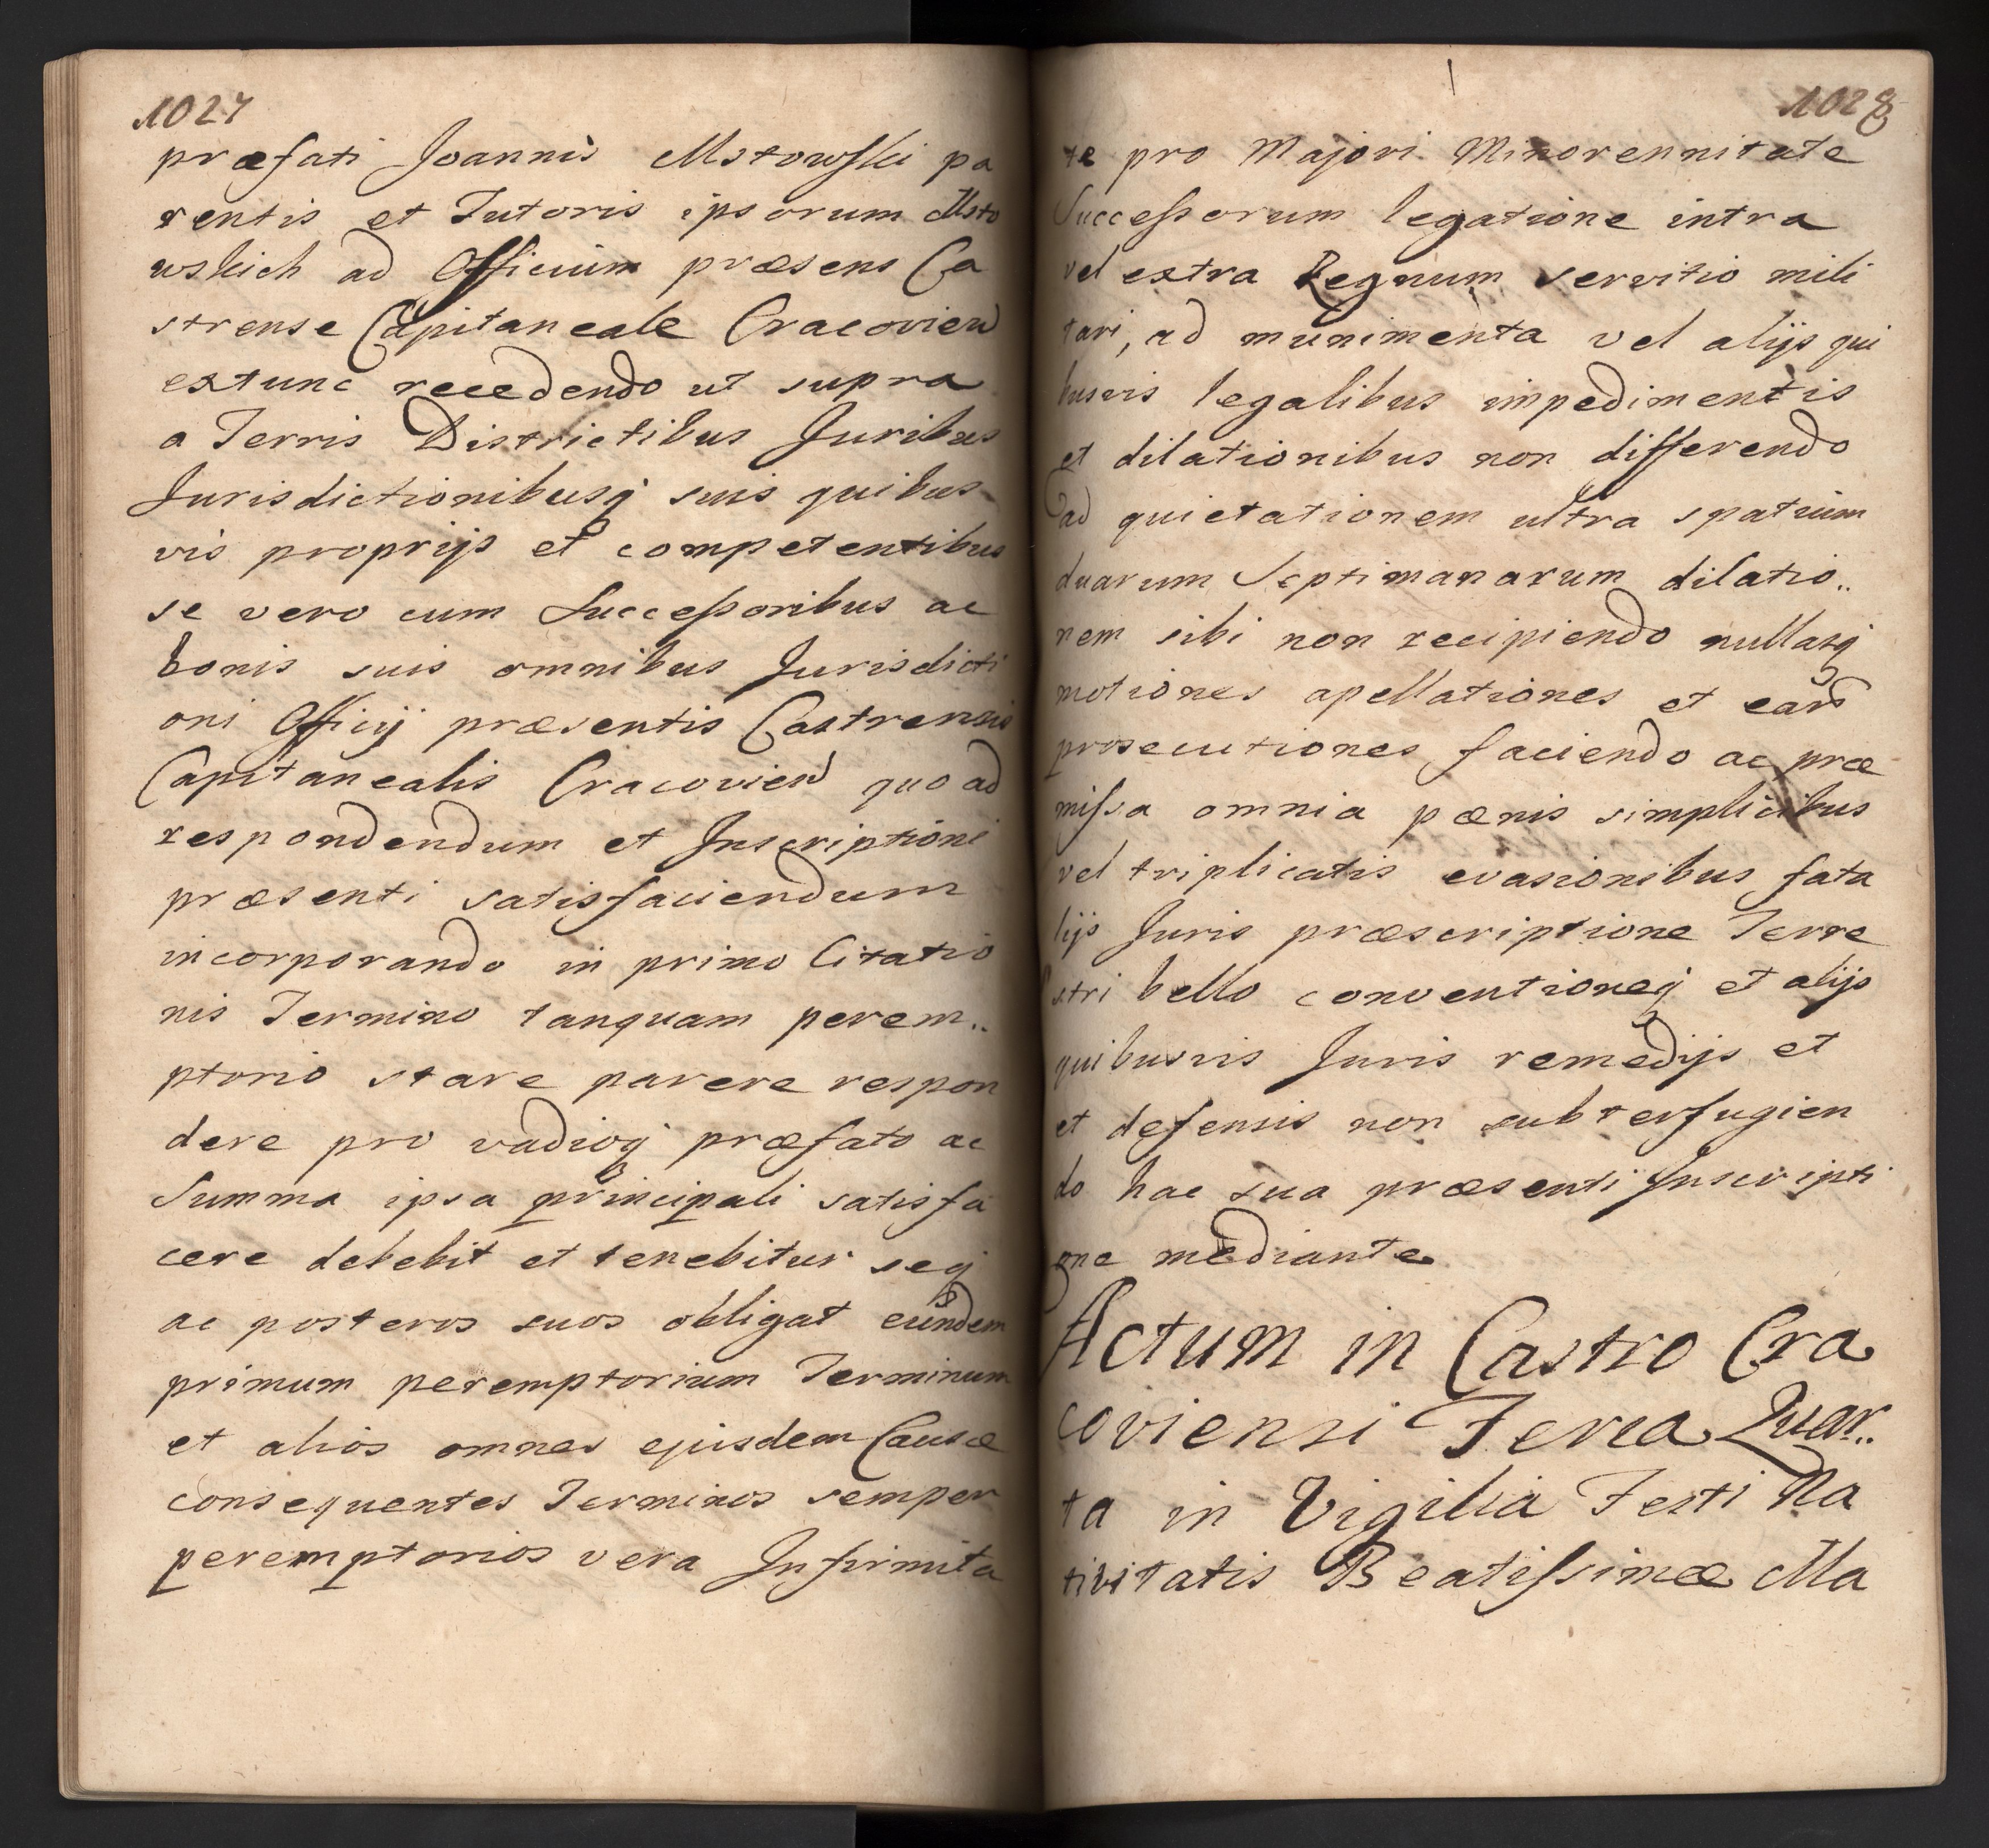 1027
præfati Joannis Mstowski pa
rentis et Tutoris ipsorum Msto
wskich ad Officium præsens Ca
strense Capitaneale Cracovien
extunc recedendo ut supra
a Terris Districtibus Juribus
Jurisdictionibusq suis quibus
vis proprijs et competentibus
se vero cum Successoribus ac
bonis suis omnibus Jurisdicti
oni Officij præsentis Castrensis
Capitanealis Cracovien quo ad
respondendum et Inscriptioni
præsenti satisfaciendum
incorporando in primo Citatio
nis Termino tanquam perem..
ptorio stare parere respon
dere pro vadioq præfato ac
Summa ipsa principali satisfa
cere debebit et tenebitur seq
ac posteros suos obligat eundem
primum peremptorium Terminum
et alios omnes ejusdem Causæ
consequentes Terminos semper
peremptorios vera Infirmita
1028
te pro Majori Minorennitate
Successorum legatione intra
vel extra Regnum servitio mili
tari, ad munimenta vel alijs qui
busvis legalibus impedimentis
et dilationibus non differendo
ad quietationem ultra spatium
duarum Septimanarum dilatio..
nem sibi non recipiendo nullasq
motiones apellationes et earu
prosecutiones faciendo ac præ
missa omnia pænis simplicibus
vel triplicatis evasionibus fata
lijs Juris præscriptione Terre
stri bello conventioneq et alijs
quibusvis Juris remedijs et
et defensis non subterfugien
do hac sua præsenti Inscripti
one mediante
Actum in Castro Cra
coviensi Feria Quar..
ta in Vigilia Festi Na
tivitatis Beatissimæ Ma